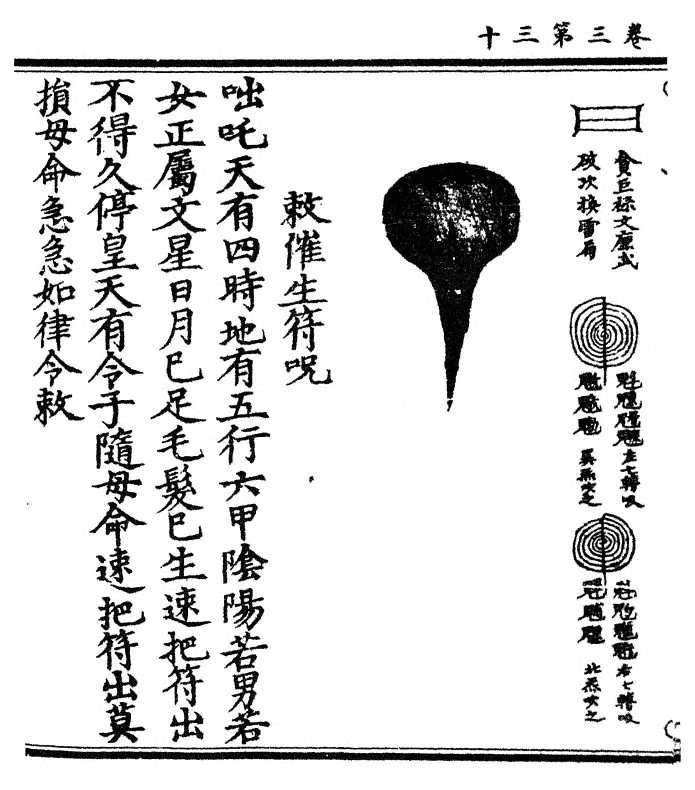 卷三第三十
貪巨祿文廉武
破次換雷局
左七轉吸
巽炁吹之
右七轉吸
北炁吹之
敕催生符呪
咄吒天有四時地有五行六甲陰陽若男若
女正屬文星日月巳足毛髮巳生速把符出
不得久停皇天有令子隨母命速把符出莫
損母命急急如律令敕